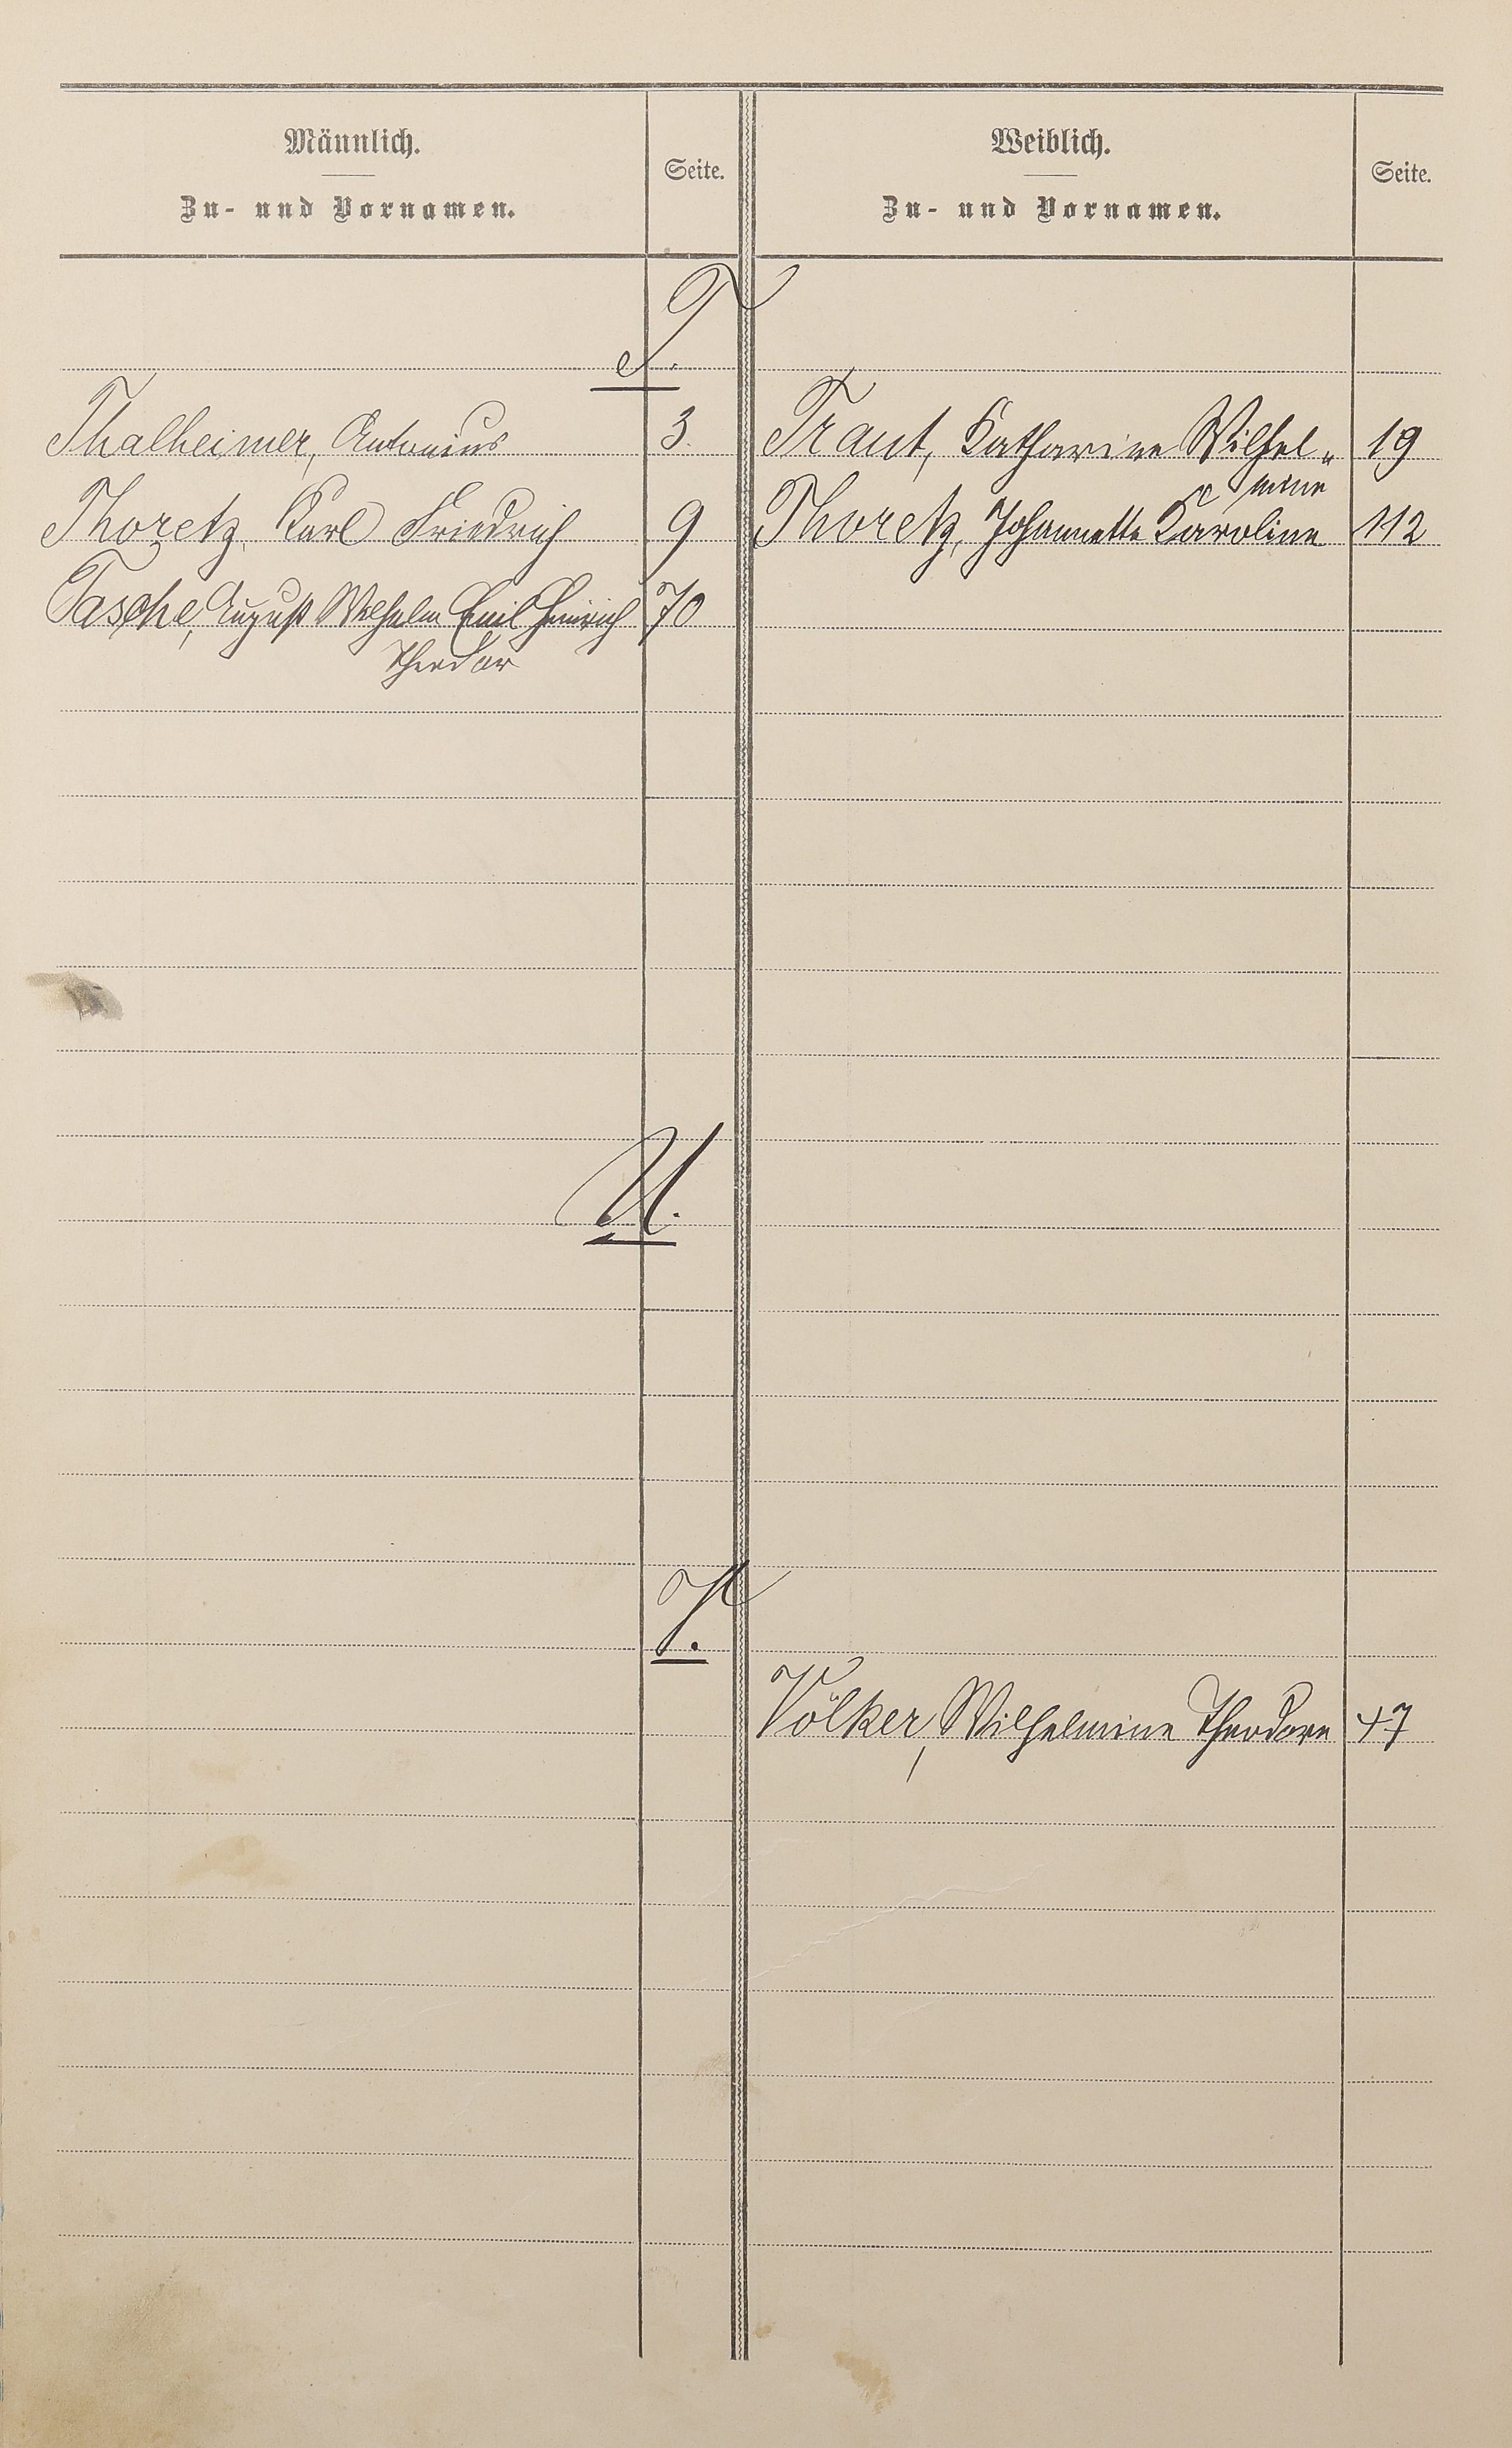 Männlich.
Zu- und Vornamen.
Seite.
Weiblich.
Zu- und Vornamen.
Seite.
T.
Thalheimer, Antonius 3.
Traut, Katharine Wilhel„ 19
mine
Thoretz, Karl Friedrich 9
Thoretz, Johannette Karoline 112
Tasche, August Wilhelm Emil Heinrich 70
Theodor
U.
V.
Völker, Wilhelmine Theodore 47